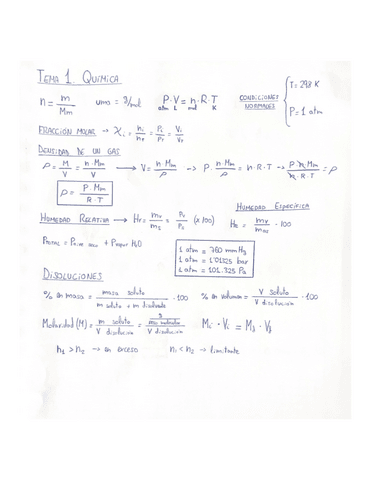 TEMA 1. QUÍMICA
n = m / Mm   uma = g/mol   P · V = n · R · T   atm L mol K   CONDICIONES NORMALES { T = 298 K   P = 1 atm
FRACCIÓN MOLAR → Xi = ni / nT = Pi / PT = Vi / VT
DENSIDAD DE UN GAS
ρ = M / V = n · Mm / V → V = n · Mm / ρ → P · n · Mm / ρ = n · R · T → P · n · Mm / n · R · T = ρ
ρ = P · Mm / R · T
HUMEDAD ESPECÍFICA
HUMEDAD RELATIVA → Hr = mv / ms = Pv / Ps (x 100)   He = mv / mas · 100
PTOTAL = Paire seco + Pvapor H2O
1 atm = 760 mmHg
1 atm = 1'01325 bar
1 atm = 101.325 Pa
DISOLUCIONES
% en masa = masa soluto / m soluto + m disolvente · 100   % en volumen = V soluto / V disolución · 100
Molaridad (M) = m soluto / V disolución = g / Mm soluto / V disolución   Mi · Vi = Mf · Vf
n1 > n2 → en exceso   n1 < n2 → limitante